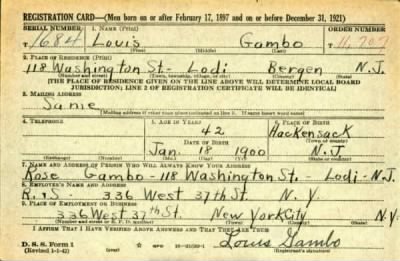 REGISTRATION CARD—(Men born on or after February 17, 1897 and on or before December 31, 1921)
SERIAL NUMBER 1. NAME (Print) ORDER NUMBER
T 1684 Louis Gambo T 11,707
(First) (Middle) (Last)
2. PLACE OF RESIDENCE (Print)
118 Washington St- Lodi Bergen N.J.
(Number and street) (Town, township, village, or city) (County) (State)
[THE PLACE OF RESIDENCE GIVEN ON THE LINE ABOVE WILL DETERMINE LOCAL BOARD
JURISDICTION; LINE 2 OF REGISTRATION CERTIFICATE WILL BE IDENTICAL]
3. MAILING ADDRESS
Same
[Mailing address if other than place indicated on line 2. If same insert word same]
4. TELEPHONE 5. AGE IN YEARS 6. PLACE OF BIRTH
42 Hackensack
DATE OF BIRTH (Town or county)
Jan. 18 1900 N.J.
(Exchange) (Number) (Mo.) (Day) (Yr.) (State or country)
7. NAME AND ADDRESS OF PERSON WHO WILL ALWAYS KNOW YOUR ADDRESS
Rose Gambo-118 Washington St.- Lodi-N.J.
8. EMPLOYER'S NAME AND ADDRESS
336 West 37th St. N.Y.
9. PLACE OF EMPLOYMENT OR BUSINESS
336 West 37th St. New York City N.Y.
(Number and street or R. F. D. number) (Town) (County) (State)
I AFFIRM THAT I HAVE VERIFIED ABOVE ANSWERS AND THAT THEY ARE TRUE.
D. S. S. Form 1 Louis Gambo
(Revised 1-1-42) (over) (Registrant's signature)